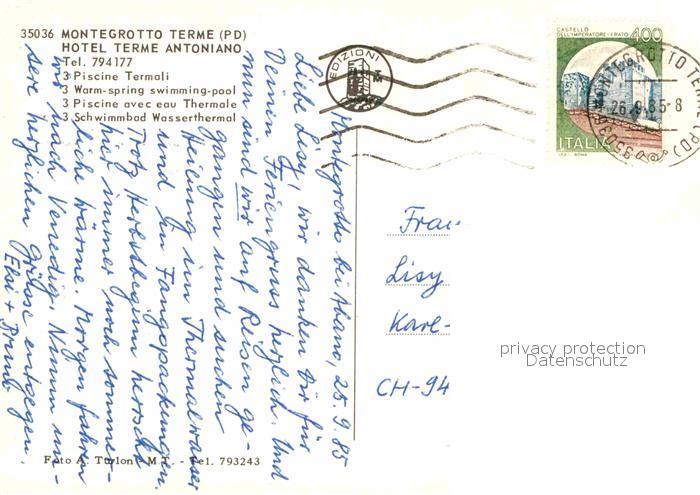 35036 MONTEGROTTO TERME (PD)
HOTEL TERME ANTONIANO
Tel. 794177
3 Piscine Termali
3 Warm-spring swimming-pool
3 Piscine avec eau Thermale
3 Schwimmbad Wasserthermal
EDIZIONI
CASTELLO
DELL'IMPERATORE - PRATO
400
ITALIA
MONTEGROTTO TERME (PD)
26.9.85-8
35036
Montegrotto bei Abano, 25.9.85
Liebe Lisy, wir danken Dir für
Deinen Feriengruss herzlich. Und
nun sind wir auf Reisen ge-
gangen und suchen
Heilung im Thermalwasser
und in Fangopackungen.
Trotz Herbstbeginn herrscht
hier immer noch sommer-
liche Wärme. Morgen fahren
wir nach Venedig. Nimm un-
sere herzlichen Grüsse entgegen.
Elsi + Bruno
Frau
Lisy
Karl-
CH-94
privacy protection
Datenschutz
Foto A. Turlon M.T. - Tel. 793243